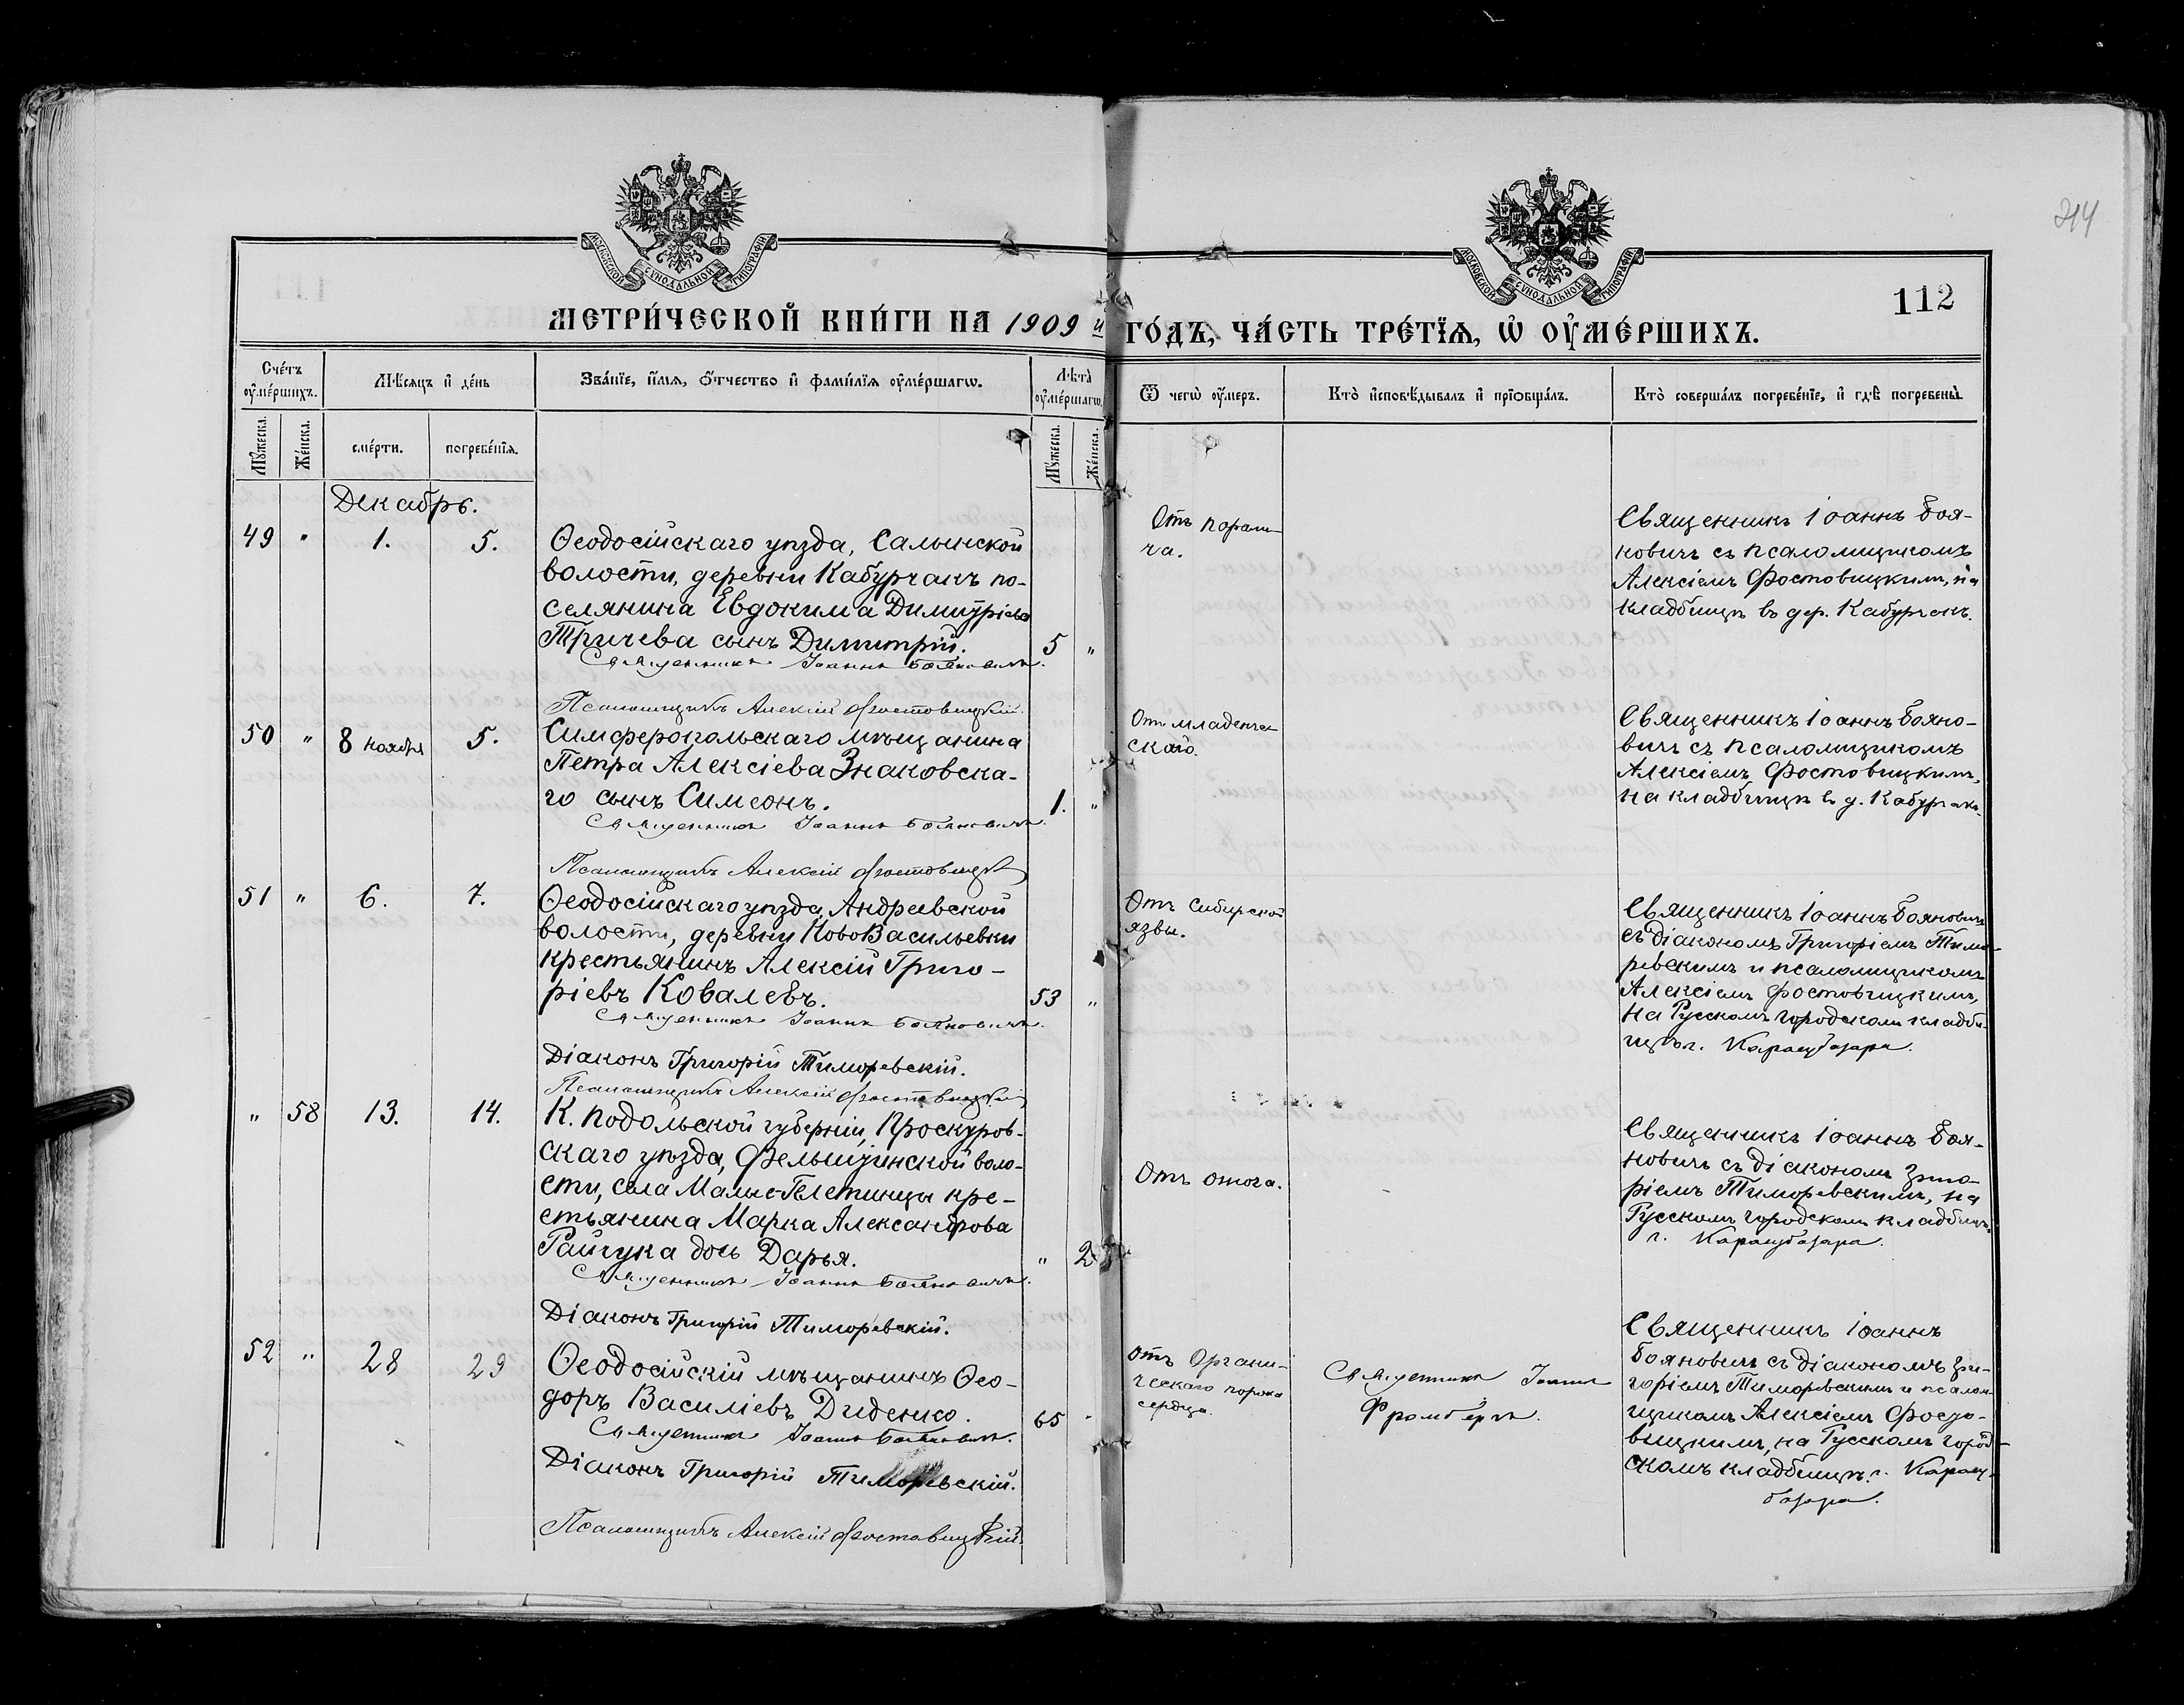 214
МОСКОВСКОЙ СѴНОДАЛЬНОЙ ТИПОГРАФІИ
МОСКОВСКОЙ СѴНОДАЛЬНОЙ ТИПОГРАФІИ
112
МЕТРИ́ЧЕСКОЙ КНИ́ГИ НА 1909 й
ГО́ДЪ, ЧА́СТЬ ТРЕ́ТЇѦ, Ѡ҆ ОУ҆МЕ́РШИХЪ.
Счéтъ оу҆мéршихъ.
Мѣ́сѧцъ и҆ дéнь
Звáнїе, и҆́мѧ, ѻ҆́тчество и҆ фамѝлїѧ оу҆мéршагѡ.
Лѣ́та оу҆мéршагѡ.
Ѿ чегѡ̀ оу҆́меръ.
Ктò и҆сповѣ́дывалъ и҆ прїѡбщáлъ.
Ктò совершáлъ погребéнїе, и҆ гдѣ̀ погребены̀
Мꙋ́жеска.
Жéнска.
смéрти.
погребéнїѧ.
Мꙋ́жеска.
Жéнска.
Декабрь.
49 " 1. 5.
Ѳеодосійскаго уѣзда, Салынской
волости, деревни Кабурчакъ по-
селянина Евдокима Димитріева
Тричева сынъ Димитрій. 5 "
Священникъ Іоаннъ Бояновичъ.
Псаломщикъ Алексій Фостовицкій.
Отъ парали-
ча.
Священникъ Іоаннъ Боя-
новичъ съ псаломщикомъ
Алексіемъ Фостовицкимъ, на
кладбищѣ въ дер. Кабурчакъ.
50 " 8 ноября 5.
Симферопольскаго мѣщанина
Петра Алексіева Знаковска-
го сынъ Симеонъ. 1. "
Священникъ Іоаннъ Бояновичъ.
Псаломщикъ Алексій Фостовицкій
Отъ младенче-
скаго.
Священникъ Іоаннъ Бояно-
вичъ съ псаломщикомъ
Алексіемъ Фостовицкимъ,
на кладбищѣ въ д. Кабурчакъ.
51 " 6. 7.
Ѳеодосійскаго уѣзда, Андреевской
волости, деревни НовоВасильевки
крестьянинъ Алексій Григо-
ріевъ Ковалевъ. 53 "
Священникъ Іоаннъ Бояновичъ.
Діаконъ Григорій Тиморевскій.
Псаломщикъ Алексій Фостовицкій
Отъ Сибирской
язвы.
Священникъ Іоаннъ Бояновичъ
съ діакономъ Григоріемъ Тимо-
ревскимъ и псаломщикомъ
Алексіемъ Фостовицкимъ,
на Русскомъ городскомъ кладби-
щѣ г. Карасубазара.
" 58 13. 14.
К. Подольской губерніи, Проскуров-
скаго уѣзда, Фельштинской воло-
сти, села Малые-Пелетинцы кре-
стьянина Марка Александрова
Райчука дочь Дарья. " 2
Священникъ Іоаннъ Бояновичъ.
Діаконъ Григорій Тиморевскій.
Отъ ожога.
Священникъ Іоаннъ Боя-
новичъ съ діакономъ Григо-
ріемъ Тиморевскимъ, на
Русскомъ городскомъ кладбищѣ
г. Карасубазара.
52 " 28 29
Ѳеодосійскій мѣщанинъ Ѳео-
доръ Василіевъ Диденко. 65
Священникъ Іоаннъ Бояновичъ.
Діаконъ Григорій Тиморевскій.
Псаломщикъ Алексій Фостовицкій.
Отъ Органи-
ческаго порока
сердца.
Священникъ Іоаннъ
Фромбергъ.
Священникъ Іоаннъ
Бояновичъ съ діакономъ Гри-
горіемъ Тиморевскимъ и псалом-
щикомъ Алексіемъ Фосто-
вицкимъ, на Русскомъ город-
скомъ кладбищѣ г. Карасу-
базара.